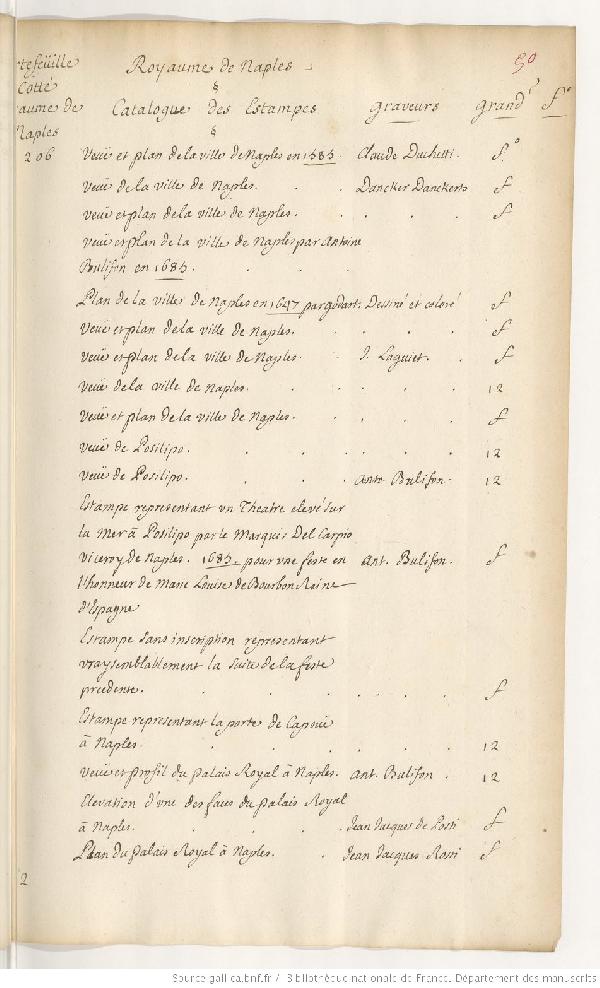 tefeüille Royaume de Naples 50
Cotté §
aume de Catalogue des Estampes graveurs grand.r f.o
Naples §
206 Veüe et plan de la ville de Naples en 1585. Claude Duchetti. f.o
Veüe de la ville de Naples. . . Dancker Danckerts f
Veüe et plan de la ville de Naples. . . . . f
Veüe et plan de la ville de Naples par Antoine
Bulifon en 1685. . . .
Plan de la ville de Naples en 1647 par godart. Dessiné et coloré f
Veüe et plan de la ville de Naples. . . . . f
Veüe et plan de la ville de Naples. . J. Laguiet. . f
Veüe de la ville de Naples. . . . . . 12
Veüe et plan de la ville de Naples. . . . . f
Veüe de Posilipo. . . . . . 12
Veüe de Posilipo. . . . Anto Bulifon. 12
Estampe representant vn Theatre elevé sur
la Mer à Posilipo par le Marquis Del Carpio
Viceroy de Naples. 1685. pour vne feste en Ant. Bulifon. f
l'honneur de Marie Louise de Bourbon Reine
d'Espagne
Estampe sans inscription representant
vraysemblablement la suite de la feste
precedente. . . . . . . f
Estampe representant la porte de Capoüe
à Naples. . . . . . . 12
Veüe et profil du palais Royal à Naples. Ant. Bulifon . 12
Elevation d'vne des faces du palais Royal
à Naples. . . . . Jean Jacques de Rossi f
Plan du palais Royal à Naples. . Jean Jacques Rossi f
2
Source gallica.bnf.fr / Bibliothèque nationale de France. Département des manuscrits